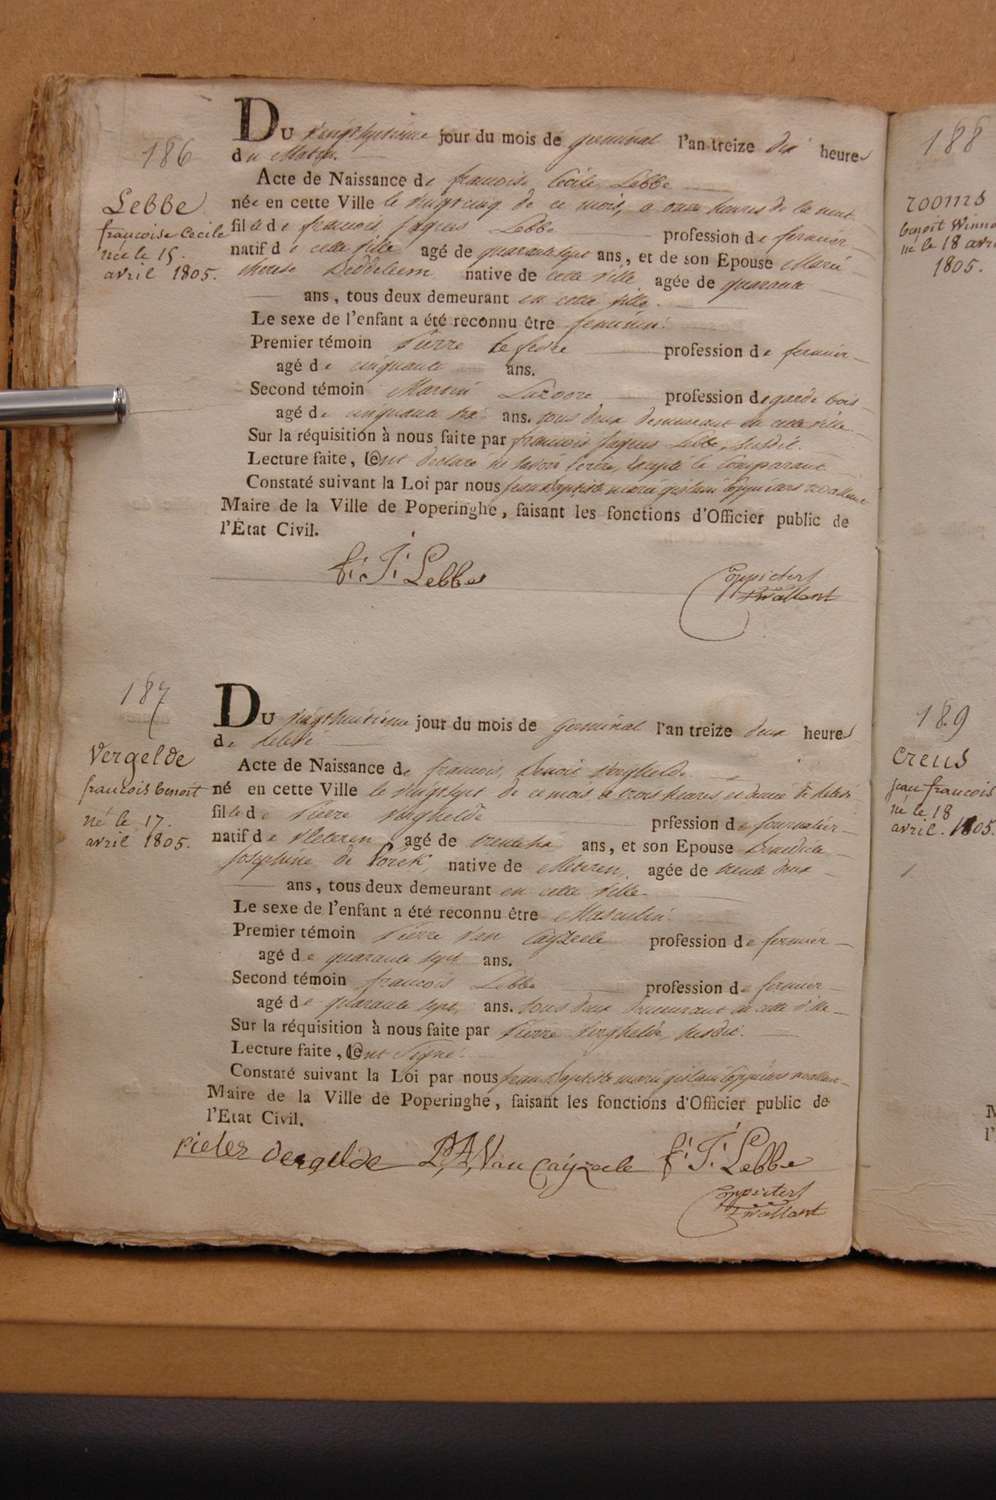 186
Lebbe
francoise Cecile
née le 15.
avril 1805.
Du vingthuitieme jour du mois de germinal l'an treize dix heures
du Matin.
Acte de Naissance de francoise Cecile Lebbe
née en cette Ville le vingtcinq de ce mois, a onze heures de la nuit
fille de francois Jaques Lebbe profession de fermier
natif de cette ville agé de quarantesept ans, et de son Epouse Marie
therese native de cette ville agée de quarante
ans, tous deux demeurant en cette ville.
Le sexe de l'enfant a été reconnu être feminin.
Premier témoin Pierre Lefevre profession de fermier
agé de cinquante ans.
Second témoin profession de garde bois
agé de cinquante six ans. tous deux demeurant en cette ville
Sur la réquisition à nous faite par francois Jaques Lebbe, susdit.
Lecture faite, ont declaré ne savoir ecrire, excepté le comparant
Constaté suivant la Loi par nous jean Baptiste marie gislain
Maire de la Ville de Poperinghe, faisant les fonctions d'Officier public de
l'État Civil.
f: J: Lebbe
187
Vergelde
francois benoit
né le 17.
avril 1805.
Du vingthuitieme jour du mois de Germinal l'an treize deux heures
de relevé
Acte de Naissance de francois benoit Verghelde
né en cette Ville le vingtsept de ce mois a trois heures et demie de relevé
fils de Pierre Verghelde prfession de
natif de Vleteren, agé de trentesix ans, et son Epouse Benedicte
Josephine de native de agée de trente deux
ans, tous deux demeurant en cette ville.
Le sexe de l'enfant a été reconnu être Masculin.
Premier témoin Pierre Van Cayzeele profession de fermier
agé de quarante sept ans.
Second témoin francois Lebbe profession de fermier
agé de quarante sept ans. tous deux demeurant en cette ville
Sur la réquisition à nous faite par Pierre Verghelde, susdit.
Lecture faite, ont Signé.
Constaté suivant la Loi par nous jean Baptiste marie gislain
Maire de la Ville de Poperinghe, faisant les fonctions d'Officier public de
l'Etat Civil.
Pieter Vergelde Van Cayzeele f: J: Lebbe
188
rooms
benoit
né le 18
1805.
189
Creus
jean francois
né le 18
avril. 1805.